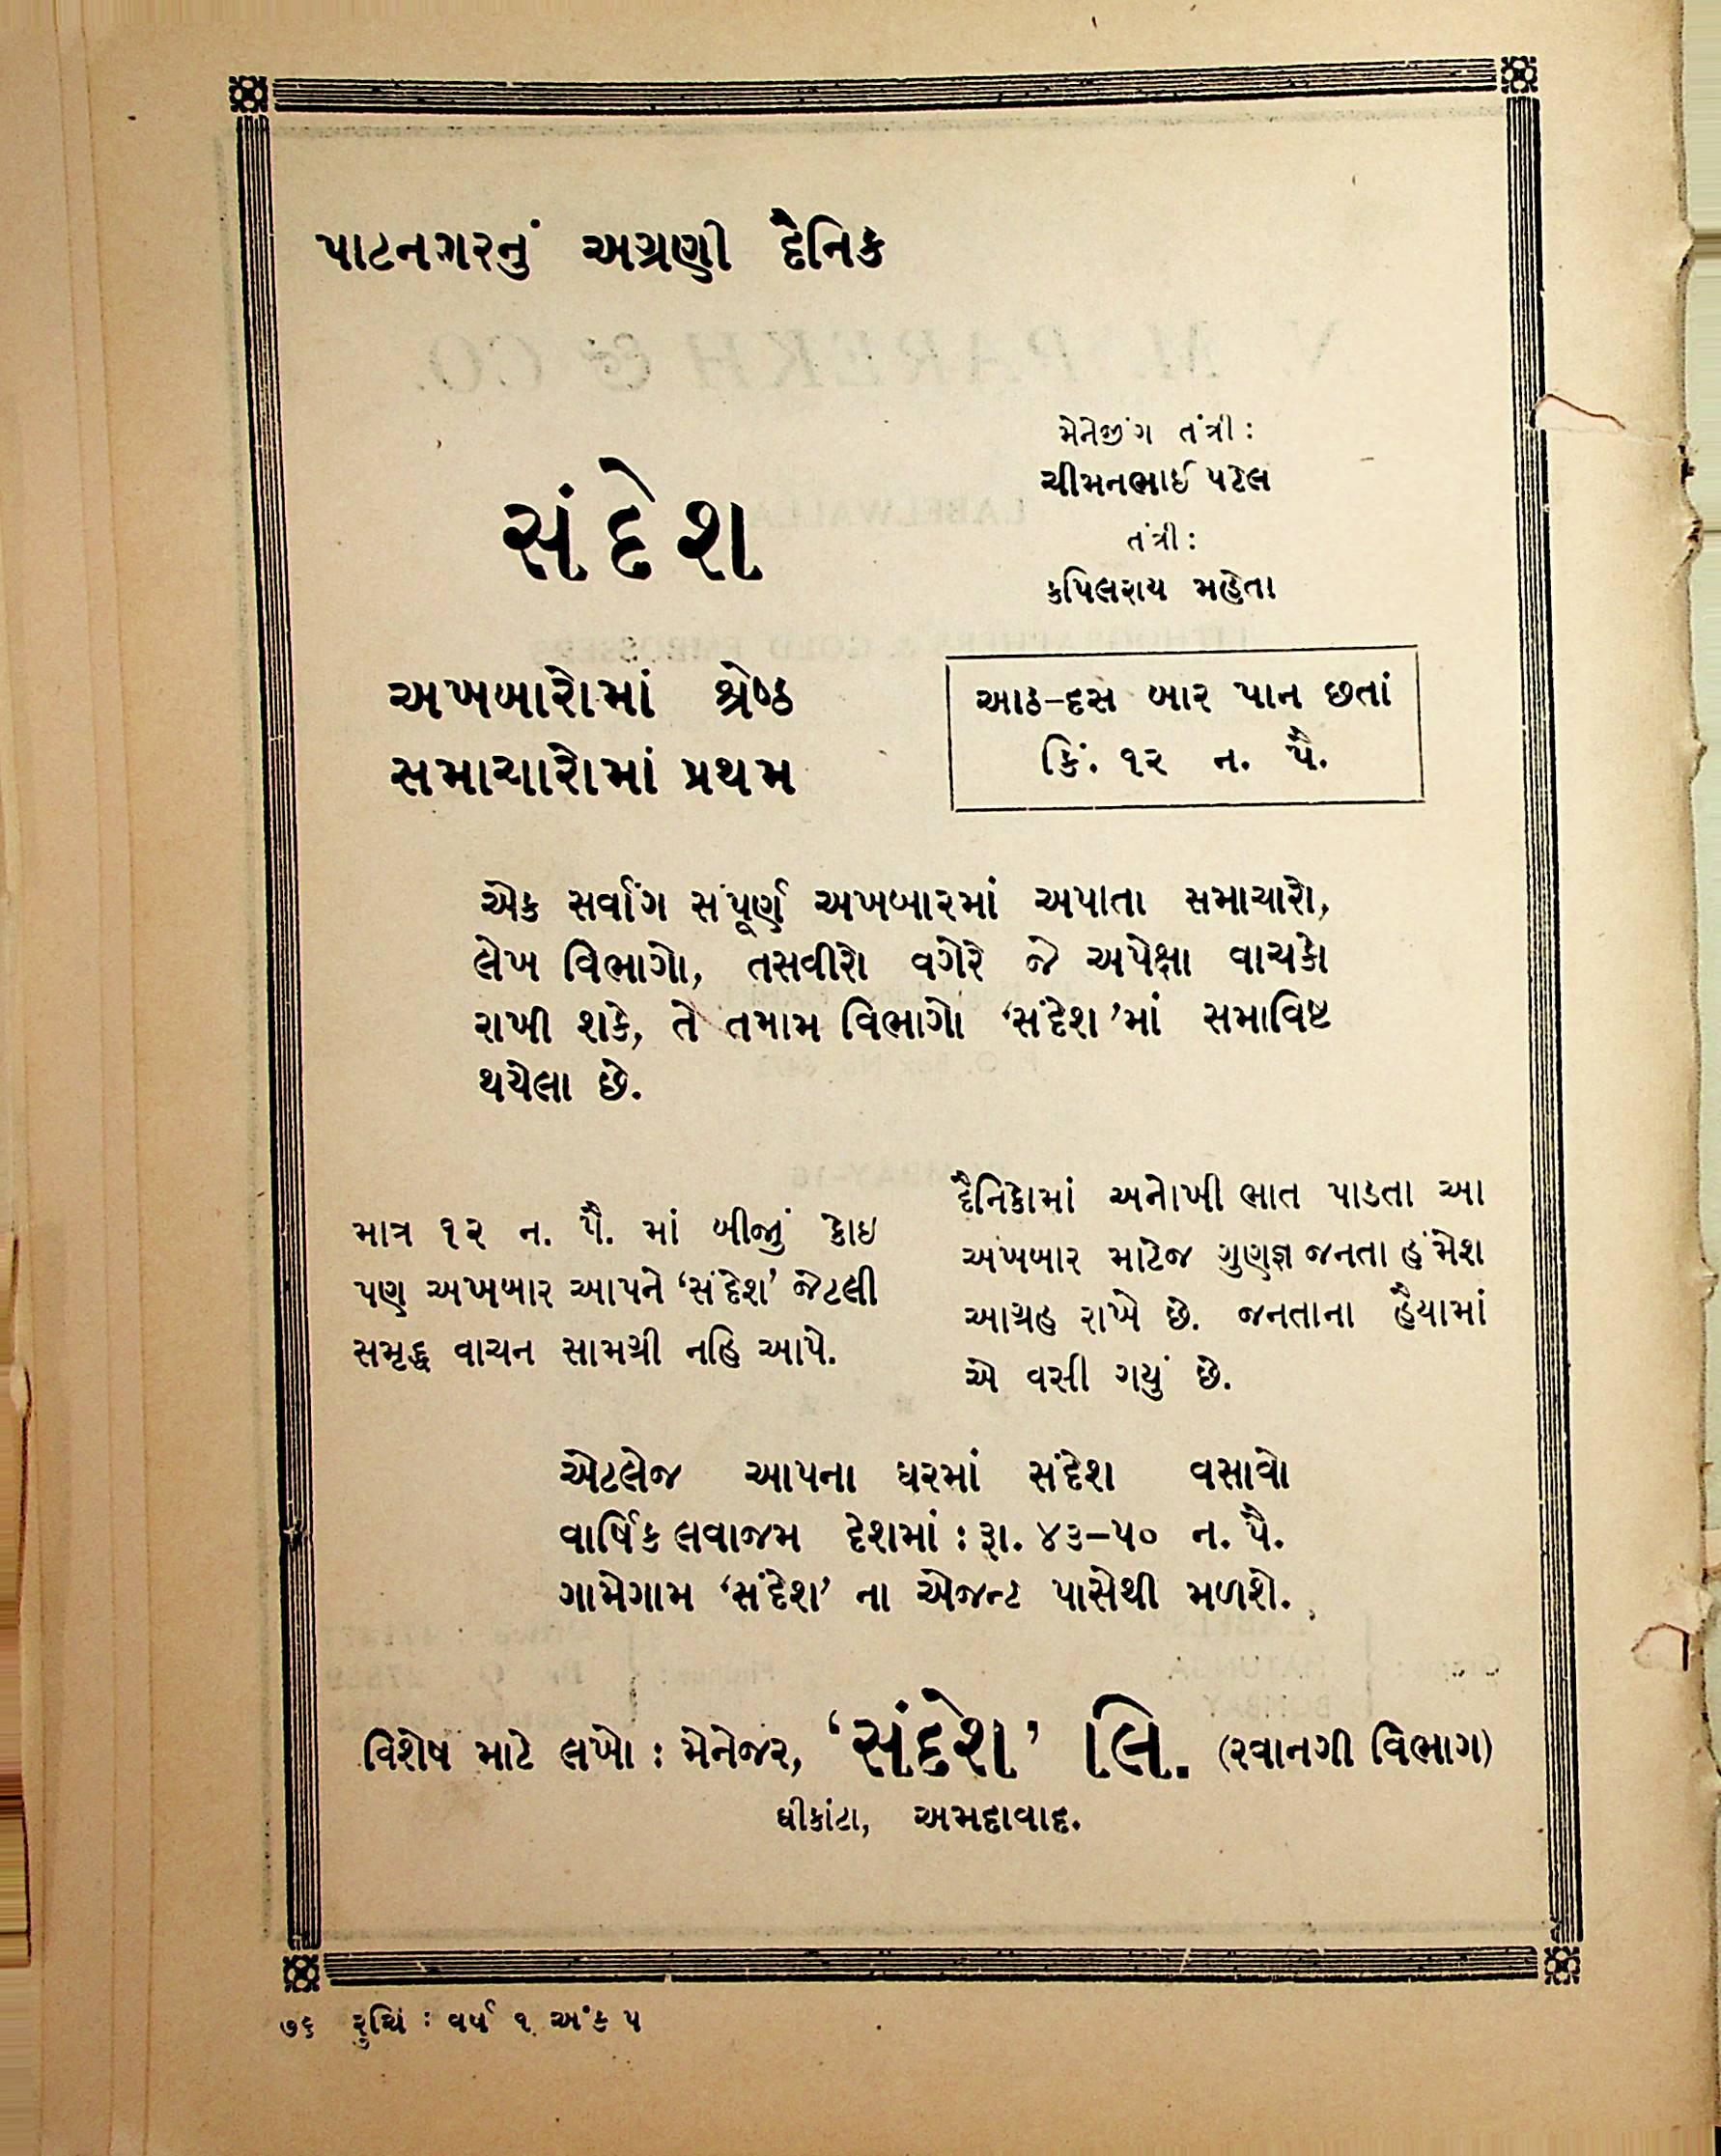 પાટનગરનું અગ્રણી દૈનિક
મેનેજીંગ તંત્રી :
ચીમનભાઈ પટેલ
તંત્રી :
કપિલરાય મહેતા
સંદેશ
અખબારોમાં શ્રેષ્ઠ
સમાચારોમાં પ્રથમ
આઠ-દસ બાર પાન છતાં
કિં. ૧૨ ન. પૈ.
એક સર્વાંગ સંપૂર્ણ અખબારમાં અપાતા સમાચારો,
લેખ વિભાગો, તસવીરો વગેરે જે અપેક્ષા વાચકો
રાખી શકે, તે તમામ વિભાગો ‘સંદેશ’માં સમાવિષ્ટ
થયેલા છે.
માત્ર ૧૨ ન. પૈ. માં બીજું કોઇ
પણ અખબાર આપને ‘સંદેશ’ જેટલી
સમૃદ્ધ વાચન સામગ્રી નહિ આપે.
દૈનિકોમાં અનોખી ભાત પાડતા આ
અખબાર માટેજ ગુણજ્ઞ જનતા હંમેશ
આગ્રહ રાખે છે. જનતાના હૈયામાં
એ વસી ગયું છે.
એટલેજ આપના ઘરમાં સંદેશ વસાવો
વાર્ષિક લવાજમ દેશમાં : રૂા. ૪૩-૫૦ ન. પૈ.
ગામેગામ ‘સંદેશ’ ના એજન્ટ પાસેથી મળશે.
વિશેષ માટે લખો : મેનેજર, ‘સંદેશ’ લિ. (રવાનગી વિભાગ)
ઘીકાંટા, અમદાવાદ.
૭૬ રુચિ : વર્ષ ૧ અંક ૫